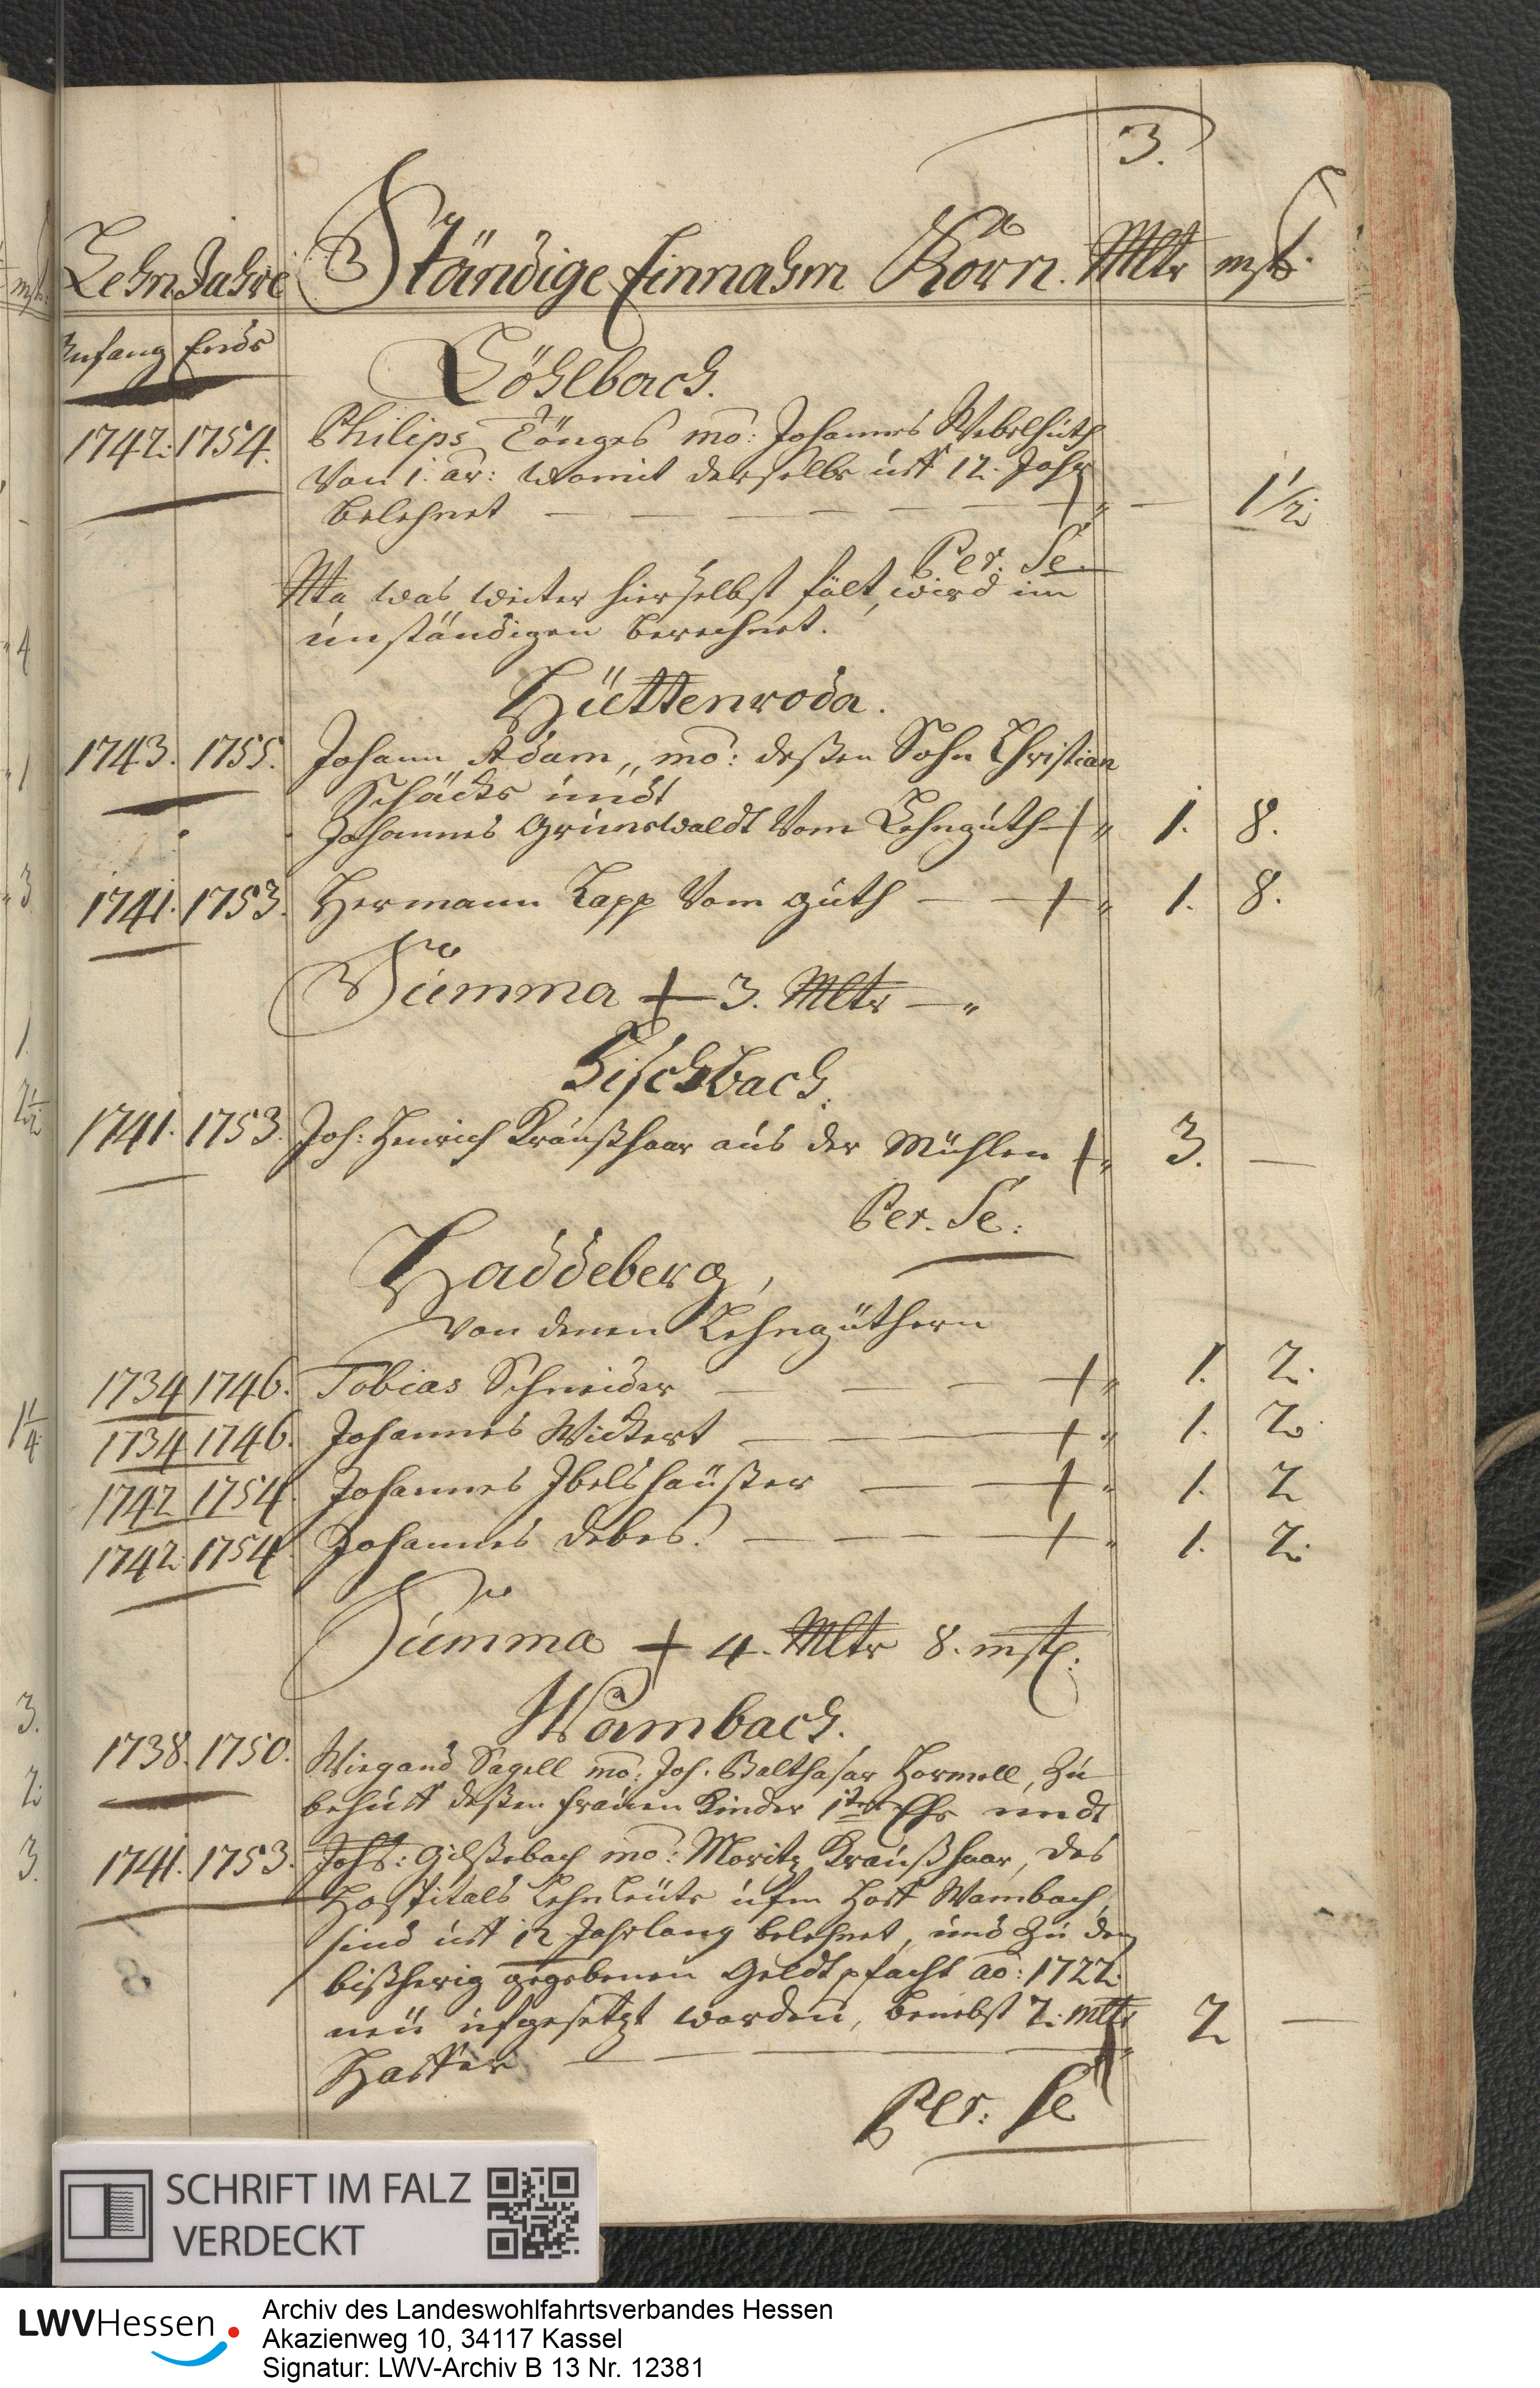 3.
Lehn Jahre Ständige Einnahm Korn. Mltr mst.
Anfang Ende
Löhlbach.
1742. 1754. Philips Tönges mo: Johannes Webelhuth
Von 1. ar: womit derselbe uff 12. Jahr
belehnet — — — — — — — + „ — 1½.
Per. Se.
Nta was weiter hierselbst fält, wird im
unständigen berechnet.
Hüttenroda.
1743. 1755. Johann Adam „ mo: deßen Sohn Christian
Schäcke undt
Johannes Grunewaldt Vom Lehnguth + „ 1. 8.
1741. 1753. Hermann Lapp Vom guth — — + „ 1. 8.
Summa + 3. Mltr — „
Fischbach.
1741. 1753. Joh: Henrich Kraußhaar aus der Mühlen + „ 3. —
Per. Se:
Haddeberg,
Von denen Lehngüthern
1734 1746. Tobias Schneider — — — + „ 1. 2.
1734 1746. Johannes Wickert — — — + „ 1. 2.
1742 1754. Johannes Ibelshäußer — — + „ 1. 2
1742. 1754. Johannes Debes. — — — + „ 1. 2.
Summa + 4. Mltr 8. mst:
Wambach.
1738. 1750. Wiegand Sagell mo: Joh. Balthasar Hormell, Zu
behuff deßen frauen Kinder 1ter Ehe undt
1741. 1753. Joht: Gilßebach mo: Moritz Kraußhaar, des
Hospitals Lehnleute ufm Hoff Wambach,
sind uff 12 Jahrlang belehnet, und Zu dem
bißherig gegebenen Geldt pfacht ao: 1722.
neü ufgesetzt worden, benebst 2. mltr
Haffer — — — — — + „ 2 —
Per. Se
SCHRIFT IM FALZ
VERDECKT
LWVHessen
Archiv des Landeswohlfahrtsverbandes Hessen
Akazienweg 10, 34117 Kassel
Signatur: LWV-Archiv B 13 Nr. 12381